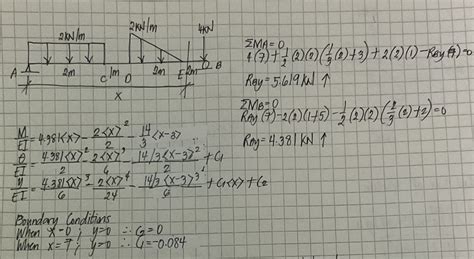 2kN/m
2kN/m
4KN
A
B
2m
C
1m
D
2m
E
2m
X
ΣMA=0
4(7)+½(2)(2)(⅓(2)+3)+2(2)(1)-RBy(7)=0
RBy=5.619KN ↑
ΣMB=0
RAy(7)-2(2)(1+5)-½(2)(2)(⅔(2)+2)=0
RAy=4.381 KN ↑
M/EI = 4.381<x> - 2<x>²/2 - 14/3<x-3>
θ/EI = 4.381<x>²/2 - 2<x>³/6 - 14/3<x-3>²/2 + C1
y/EI = 4.381<x>³/6 - 2<x>⁴/24 - 14/3<x-3>³/6 + C1<x> + C2
Boundary Conditions
When x=0; y=0 ∴ C2=0
When x=7; y=0 ∴ C1=-0.084